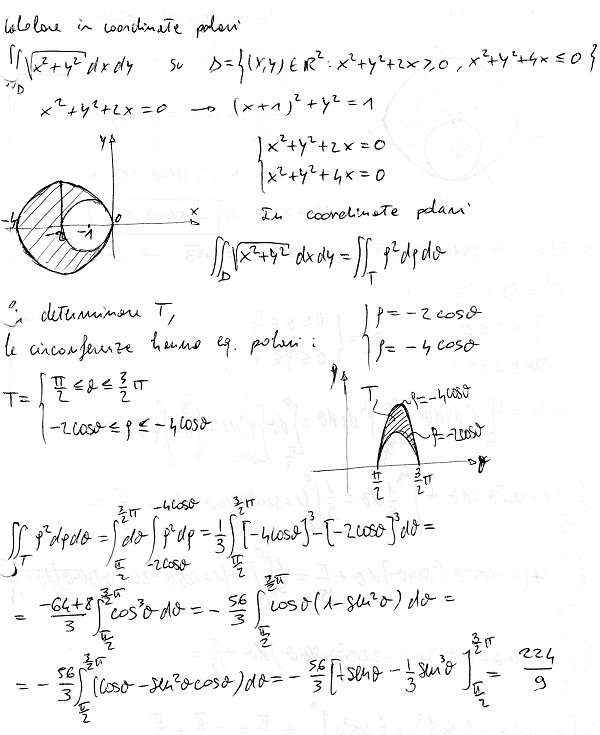 Calcolare in coordinate polari
∬_D √(x²+y²) dx dy su D = {(x,y) ∈ ℝ² : x²+y²+2x ≥ 0, x²+y²+4x ≤ 0}
x²+y²+2x=0 → (x+1)²+y²=1
{ x²+y²+2x=0
{ x²+y²+4x=0
y
x
-4 -2 -1 0
In coordinate polari
∬_D √(x²+y²) dx dy = ∬_T ρ² dρ dθ
determinare T,
le circonferenze hanno eq. polari: { ρ = -2cosθ
{ ρ = -4cosθ
T = { π/2 ≤ θ ≤ 3/2 π
{ -2cosθ ≤ ρ ≤ -4cosθ
T ρ=-4cosθ
ρ=-2cosθ
π/2 3/2 π
∬_T ρ² dρ dθ = ∫_{π/2}^{3/2 π} dθ ∫_{-2cosθ}^{-4cosθ} ρ² dρ = 1/3 ∫_{π/2}^{3/2 π} [-4cosθ]³ - [-2cosθ]³ dθ =
= (-64+8)/3 ∫_{π/2}^{3/2 π} cos³θ dθ = - 56/3 ∫_{π/2}^{3/2 π} cosθ (1-sen²θ) dθ =
= - 56/3 ∫_{π/2}^{3/2 π} (cosθ - sen²θ cosθ) dθ = - 56/3 [+senθ - 1/3 sen³θ]_{π/2}^{3/2 π} = 224/9